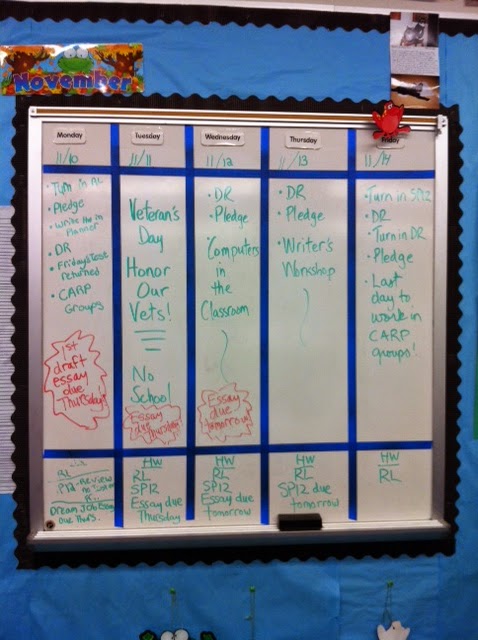 November
Monday
11/10
• Turn in RL
• Pledge
• Write HW in
Planner
• DR
• Fridays Test
returned
• CARP
Groups
1st
draft
essay
due
Thursday!
RL
Dream Job Essay
Due Thurs.
Tuesday
11/11
Veteran's
Day
Honor
Our
Vets!
No
School
Essay
Due
Thursday!
HW
RL
SP12
Essay due
Thursday
Wednesday
11/12
• DR
• Pledge
• Computers
in
the
Classroom
Essay
due
tomorrow!
HW
RL
SP12
Essay due
tomorrow
Thursday
11/13
• DR
• Pledge
• Writer's
Workshop
HW
RL
SP12 due
tomorrow
Friday
11/14
• Turn in SP12
• DR
• Turn in DR
• Pledge
• Last
day to
work in
CARP
groups!
HW
RL